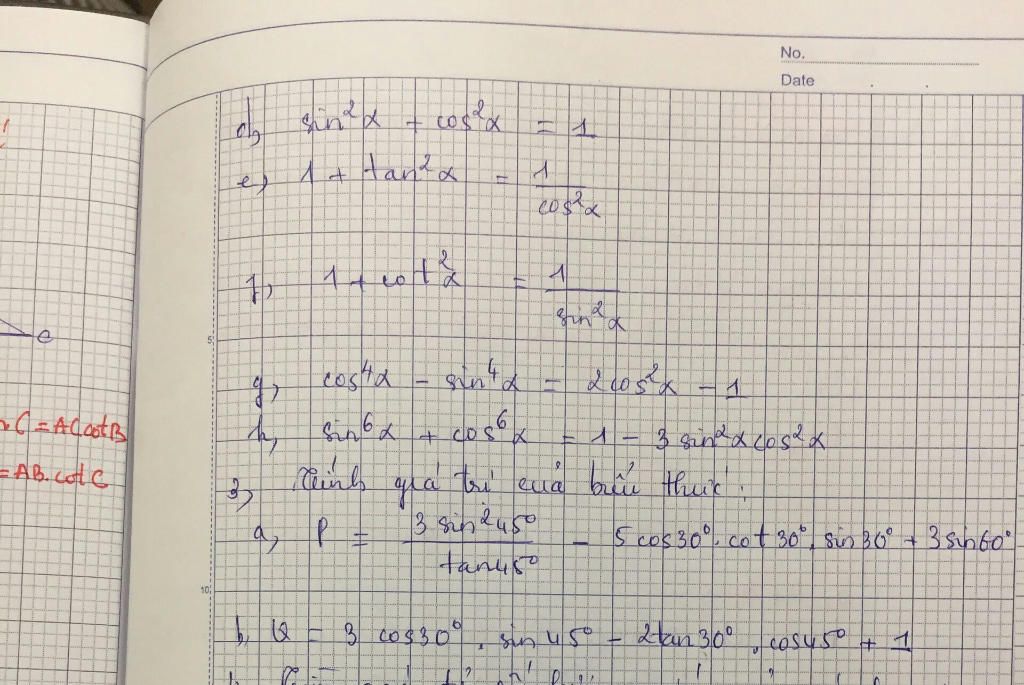 No.
Date
d, sin²α + cos²α = 1
e, 1 + tan²α = 1/cos²α
f, 1 + cot²α = 1/sin²α
5
C
g, cos⁴α - sin⁴α = 2cos²α - 1
C = AC cotB
h, sin⁶α + cos⁶α = 1 - 3 sin²α cos²α
= AB. cot C
3, Tính giá trị của biểu thức :
a, P = 3 sin²45°/tan45° - 5 cos30°. cot 30°. sin30° + 3 sin60°
10
b, Q = 3 cos30°. sin 45° - 2tan30°. cos45° + 1